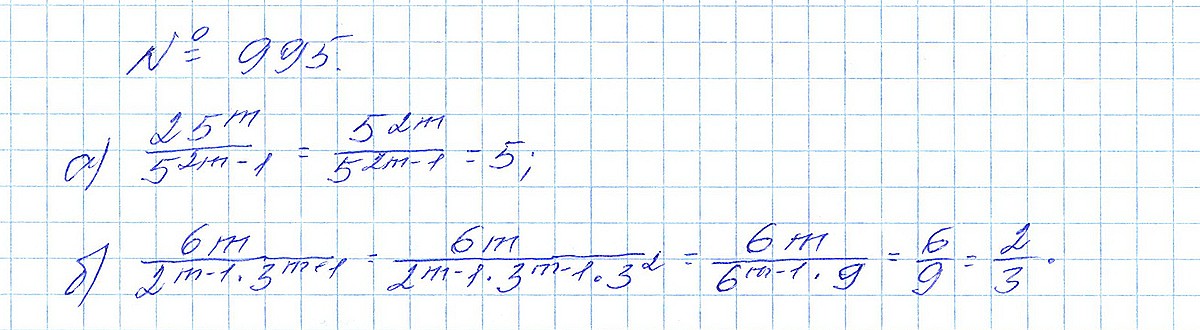 № 995.
а) \frac{25^m}{5^{2m-1}} = \frac{5^{2m}}{5^{2m-1}} = 5;
б) \frac{6^m}{2^{m-1} \cdot 3^{m+1}} = \frac{6^m}{2^{m-1} \cdot 3^{m-1} \cdot 3^2} = \frac{6^m}{6^{m-1} \cdot 9} = \frac{6}{9} = \frac{2}{3}.